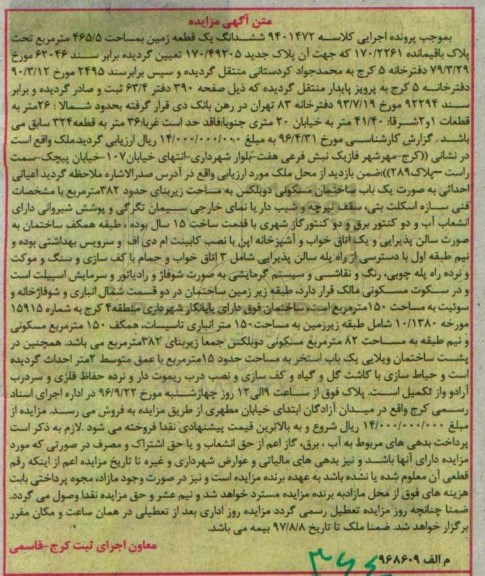 متن آگهی مزایده
بموجب پرونده اجرایی کلاسه ۹۴۰۱۴۷۲ ششدانگ یک قطعه زمین بمساحت ۴۶۵/۵ مترمربع تحت
پلاک باقیمانده ۱۷۰/۲۲۶۱ که جهت آن پلاک جدید ۱۷۰/۴۹۲۰۵ تعیین گردیده برابر سند ۶۲۰۴۶ مورخ
۷۹/۳/۲۹ دفترخانه ۵ کرج به محمدجواد کردستانی منتقل گردیده و سپس برابر سند ۲۴۹۵ مورخ ۹۰/۳/۱۲
دفترخانه ۵ کرج به پرویز پایدار منتقل گردیده که ذیل صفحه ۳۹۰ دفتر ۶۳/۴ ثبت و صادر گردیده و برابر
سند ۹۲۲۹۴ مورخ ۹۳/۷/۱۹ دفترخانه ۸۳ تهران در رهن بانک دی قرار گرفته بحدود شمالا : ۲۶متر به
قطعات ۱و۲شرقا: ۴۱/۴۰ متر به خیابان ۲۰ متری جنوبا:فاقد حد است غربا:۳۶ متر به قطعه۳۲۴ سابق می
باشد . گزارش کارشناسی مورخ ۹۶/۴/۳۱ به مبلغ ۱۴/۰۰۰/۰۰۰/۰۰۰ ریال ارزیابی گردید.ملک واقع است
در نشانی ((کرج-مهرشهر فازیک نبش فرعی هفت-بلوار شهرداری-انتهای خیابان۱۰۷-خیابان پیچک-سمت
راست –پلاک۲۸۹))ضمن بازدید از محل ملک مورد ارزیابی واقع در آدرس صدرالاشاره ملاحظه گردید اعیانی
احداثی به صورت یک باب ساختمان مسکونی دوبلکس به مساحت زیربنای حدود ۳۸۲مترمربع با مشخصات
فنی سازه اسکلت بتی، سقف تیرچه و شیب دار با نمای خارجی سیمان تگرگی و پوشش شیروانی دارای
انشعاب آب و دو کنتور برق و دو کنتور گاز شهری با قدمت ساخت ۱۵ سال بوده . طبقه همکف ساختمان به
صورت سالن پذیرایی و یک اتاق خواب و آشپزخانه اپن با نصب کابینت ام دی اف و سرویس بهداشتی بوده و
نیم طبقه اول با دسترسی از راه پله سالن پذیرایی شامل ۳ اتاق خواب و حمام با کف سازی و سنگ و موکت
و نرده راه پله چوبی، رنگ و نقاشی و سیستم گرمایشی به صورت شوفاژ و رادیاتور و سرمایش اسپیلت است
و در سکوت مسکونی مالک قرار دارد. طبقه زیر زمین ساختمان در دو قسمت شمال انباری و شوفاژخانه و
سوئیت به مساحت ۱۵۰مترمربع است. ساختمان فوق دارای پایانکار شهرداری منطقه۴ کرج به شماره ۱۵۹۱۵
مورخه ۱۰/۱۳۸۰ شامل طبقه زیرزمین به مساحت ۱۵۰ متر انباری تاسیسات، همکف ۱۵۰ مترمربع مسکونی
و نیم طبقه به مساحت ۸۲ مترمربع مسکونی دوبلکس جمعا زیربنای ۳۸۲مترمربع می باشد. همچنین در
پشت ساختمان ویلایی یک باب استخر به مساحت حدود ۱۵مترمربع با عمق متوسط ۲متر احداث گردیده
است و حیاط سازی با کاشت گل و گیاه و کف سازی و نصب درب ریموت دار و نرده حفاظ فلزی و سردرب
آرادو واز تکمیل است. پلاک فوق از ساعت ۹الی۱۲ روز چهارشنبه مورخ ۹۶/۹/۲۲ در اداره اجرای اسناد
رسمی کرج واقع در میدان آزادگان ابتدای خیابان مطهری از طریق مزایده به فروش می رسد. مزایده از
مبلغ ۱۴/۰۰۰/۰۰۰/۰۰۰ ریال شروع و به بالاترین قیمت پیشنهادی نقدا فروخته می شود .لازم به ذکر است
پرداخت بدهی های مربوط به آب ، برق، گاز اعم از حق انشعاب و یا حق اشتراک و مصرف در صورتی که مورد
مزایده دارای آنها باشد و نیز بدهی های مالیاتی و عوارض شهرداری و غیره تا تاریخ مزایده اعم از اینکه رقم
قطعی آن معلوم شده یا نشده باشد به عهده برنده مزایده است و نیز در صورت وجود مازاد، وجوه پرداختی بابت
هزینه های فوق از محل مازاد به برنده مزایده مسترد خواهد شد و نیم عشر و حق مزایده نقدا وصول می گردد.
ضمنا چنانچه روز مزایده تعطیل رسمی گردد مزایده روز اداری بعد از تعطیلی در همان ساعت و مکان مقرر
برگزار خواهد شد. ضمنا ملک تا تاریخ ۹۷/۸/۸ بیمه می باشد.
معاون اجرای ثبت کرج-قاسمی
م الف ۹۶۸۶۰۹